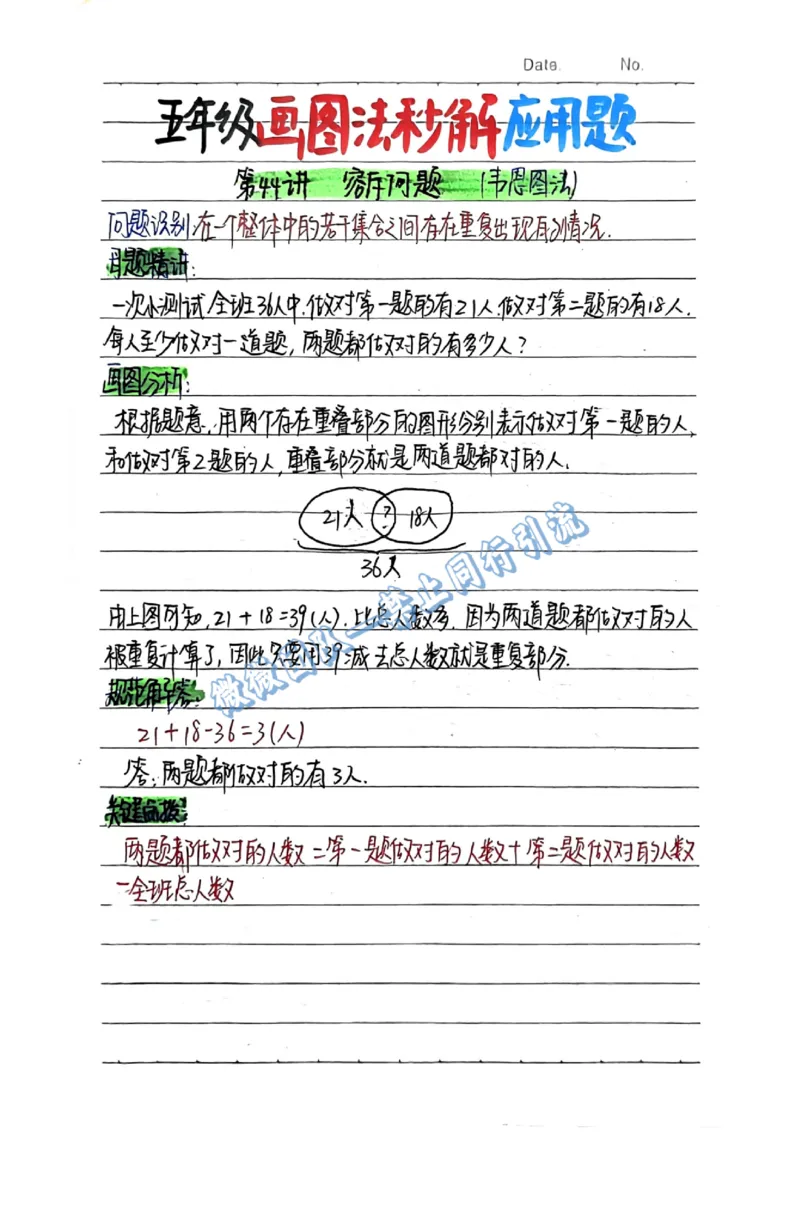 Date. No.
五年级画图法秒解应用题
第44讲 容斥问题 (韦恩图法)
问题识别:在一个整体中的若干集合之间存在重复出现的情况.
例题精讲:
一次小测试,全班36人中,做对第一题的有21人,做对第二题的有18人.
每人至少做对一道题,两题都做对的有多少人?
画图分析:
根据题意,用两个存在重叠部分的图形分别表示做对第一题的人,
和做对第2题的人,重叠部分就是两道题都对的人.
21人 ? 18人
36人
由上图可知,21+18=39(人).比总人数多,因为两道题都做对的人
被重复计算了,因此只要用39减去总人数就是重复部分.
规范解答:
21+18-36=3(人)
答:两题都做对的有3人.
关键点拨:
两题都做对的人数=第一题做对的人数+第二题做对的人数
-全班总人数
微微团队—禁止同行引流